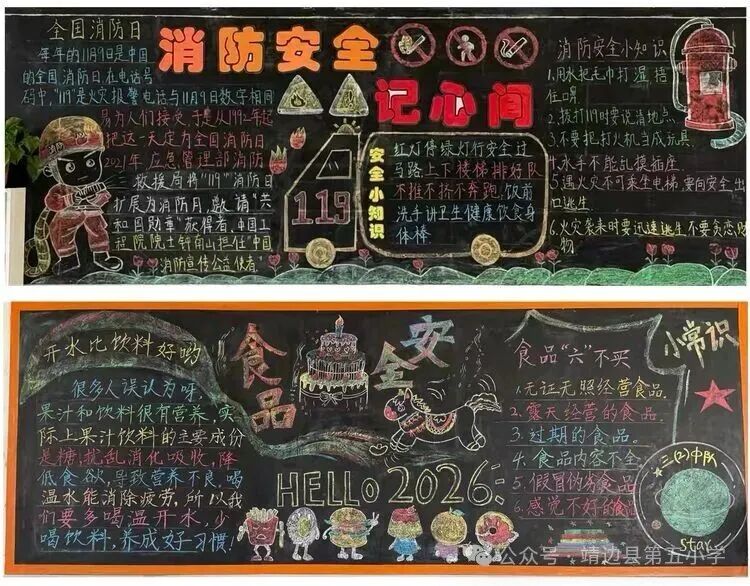 全国消防日
年年的11月9日是中国
的全国消防日.在电话号
码中,"119"是火灾报警电话与11月9日数字相同
易为人们接受.于是从1992年起
把这一天定为全国消防日
2021年应急管理部消防
救援局将"119"消防日
扩展为消防月,邀请"共
和国勋章"获得者,中国工
程院院士钟南山担任"中国
消防宣传公益使者"
消防安全
记心间
119
安全小知识
红灯停绿灯行安全过
马路上下楼梯排好队
不推不挤不奔跑.饭前
洗手讲卫生健康饮食身
体棒.
消防安全小知识
1.用水把毛巾打湿捂
住口鼻.
2.拨打119时要说清地点.
3.不要把打火机当成玩具
4.水手不能乱摸插座
5.遇火灾不可乘坐电梯,要向安全出
口逃生
6.火灾袭来时要迅速逃生不要贪恋财
物
开水比饮料好哟
很多人误认为呀,
果汁和饮料很有营养,实
际上果汁饮料的主要成份
是糖,扰乱消化吸收,降
低食欲,导致营养不良.喝
温水能消除疲劳,所以我
们要多喝温开水,少
喝饮料,养成好习惯!
食品
安全
HELLO 2026
食品"六"不买
1.无证无照经营食品.
2.露天经营的食品
3.过期的食品.
4.食品内容不全
5.假冒伪劣食品
6.感觉不好的食品
小常识
三(2)中队
star
公众号·靖边县第五小学